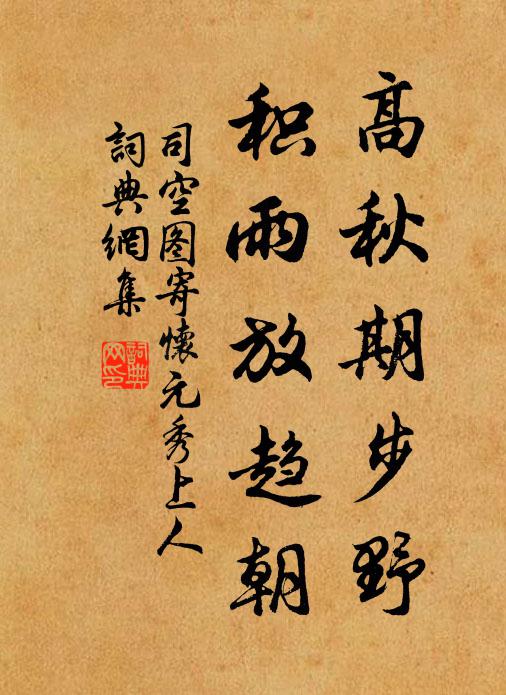 高秋期步野
积雨放趋朝
司空图寄懷元秀上人
詞典網集
詞典网印